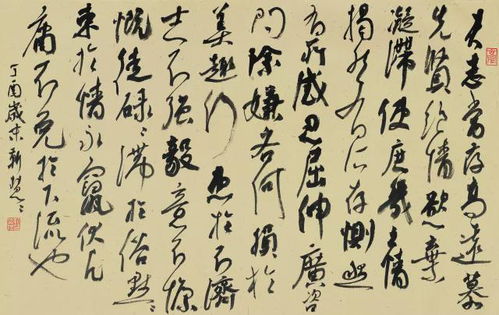 夫志當存高遠慕
先賢絕情欲棄
凝滯使庶幾之情
揭然有所存惻然
有所感忍屈伸廣咨
問除嫌吝何損於
美趣何患於不濟
志不強毅意不慷
慨徒碌碌滯於俗默默
束於情永竄伏凡
庸不免於下流也
丁酉歲末新